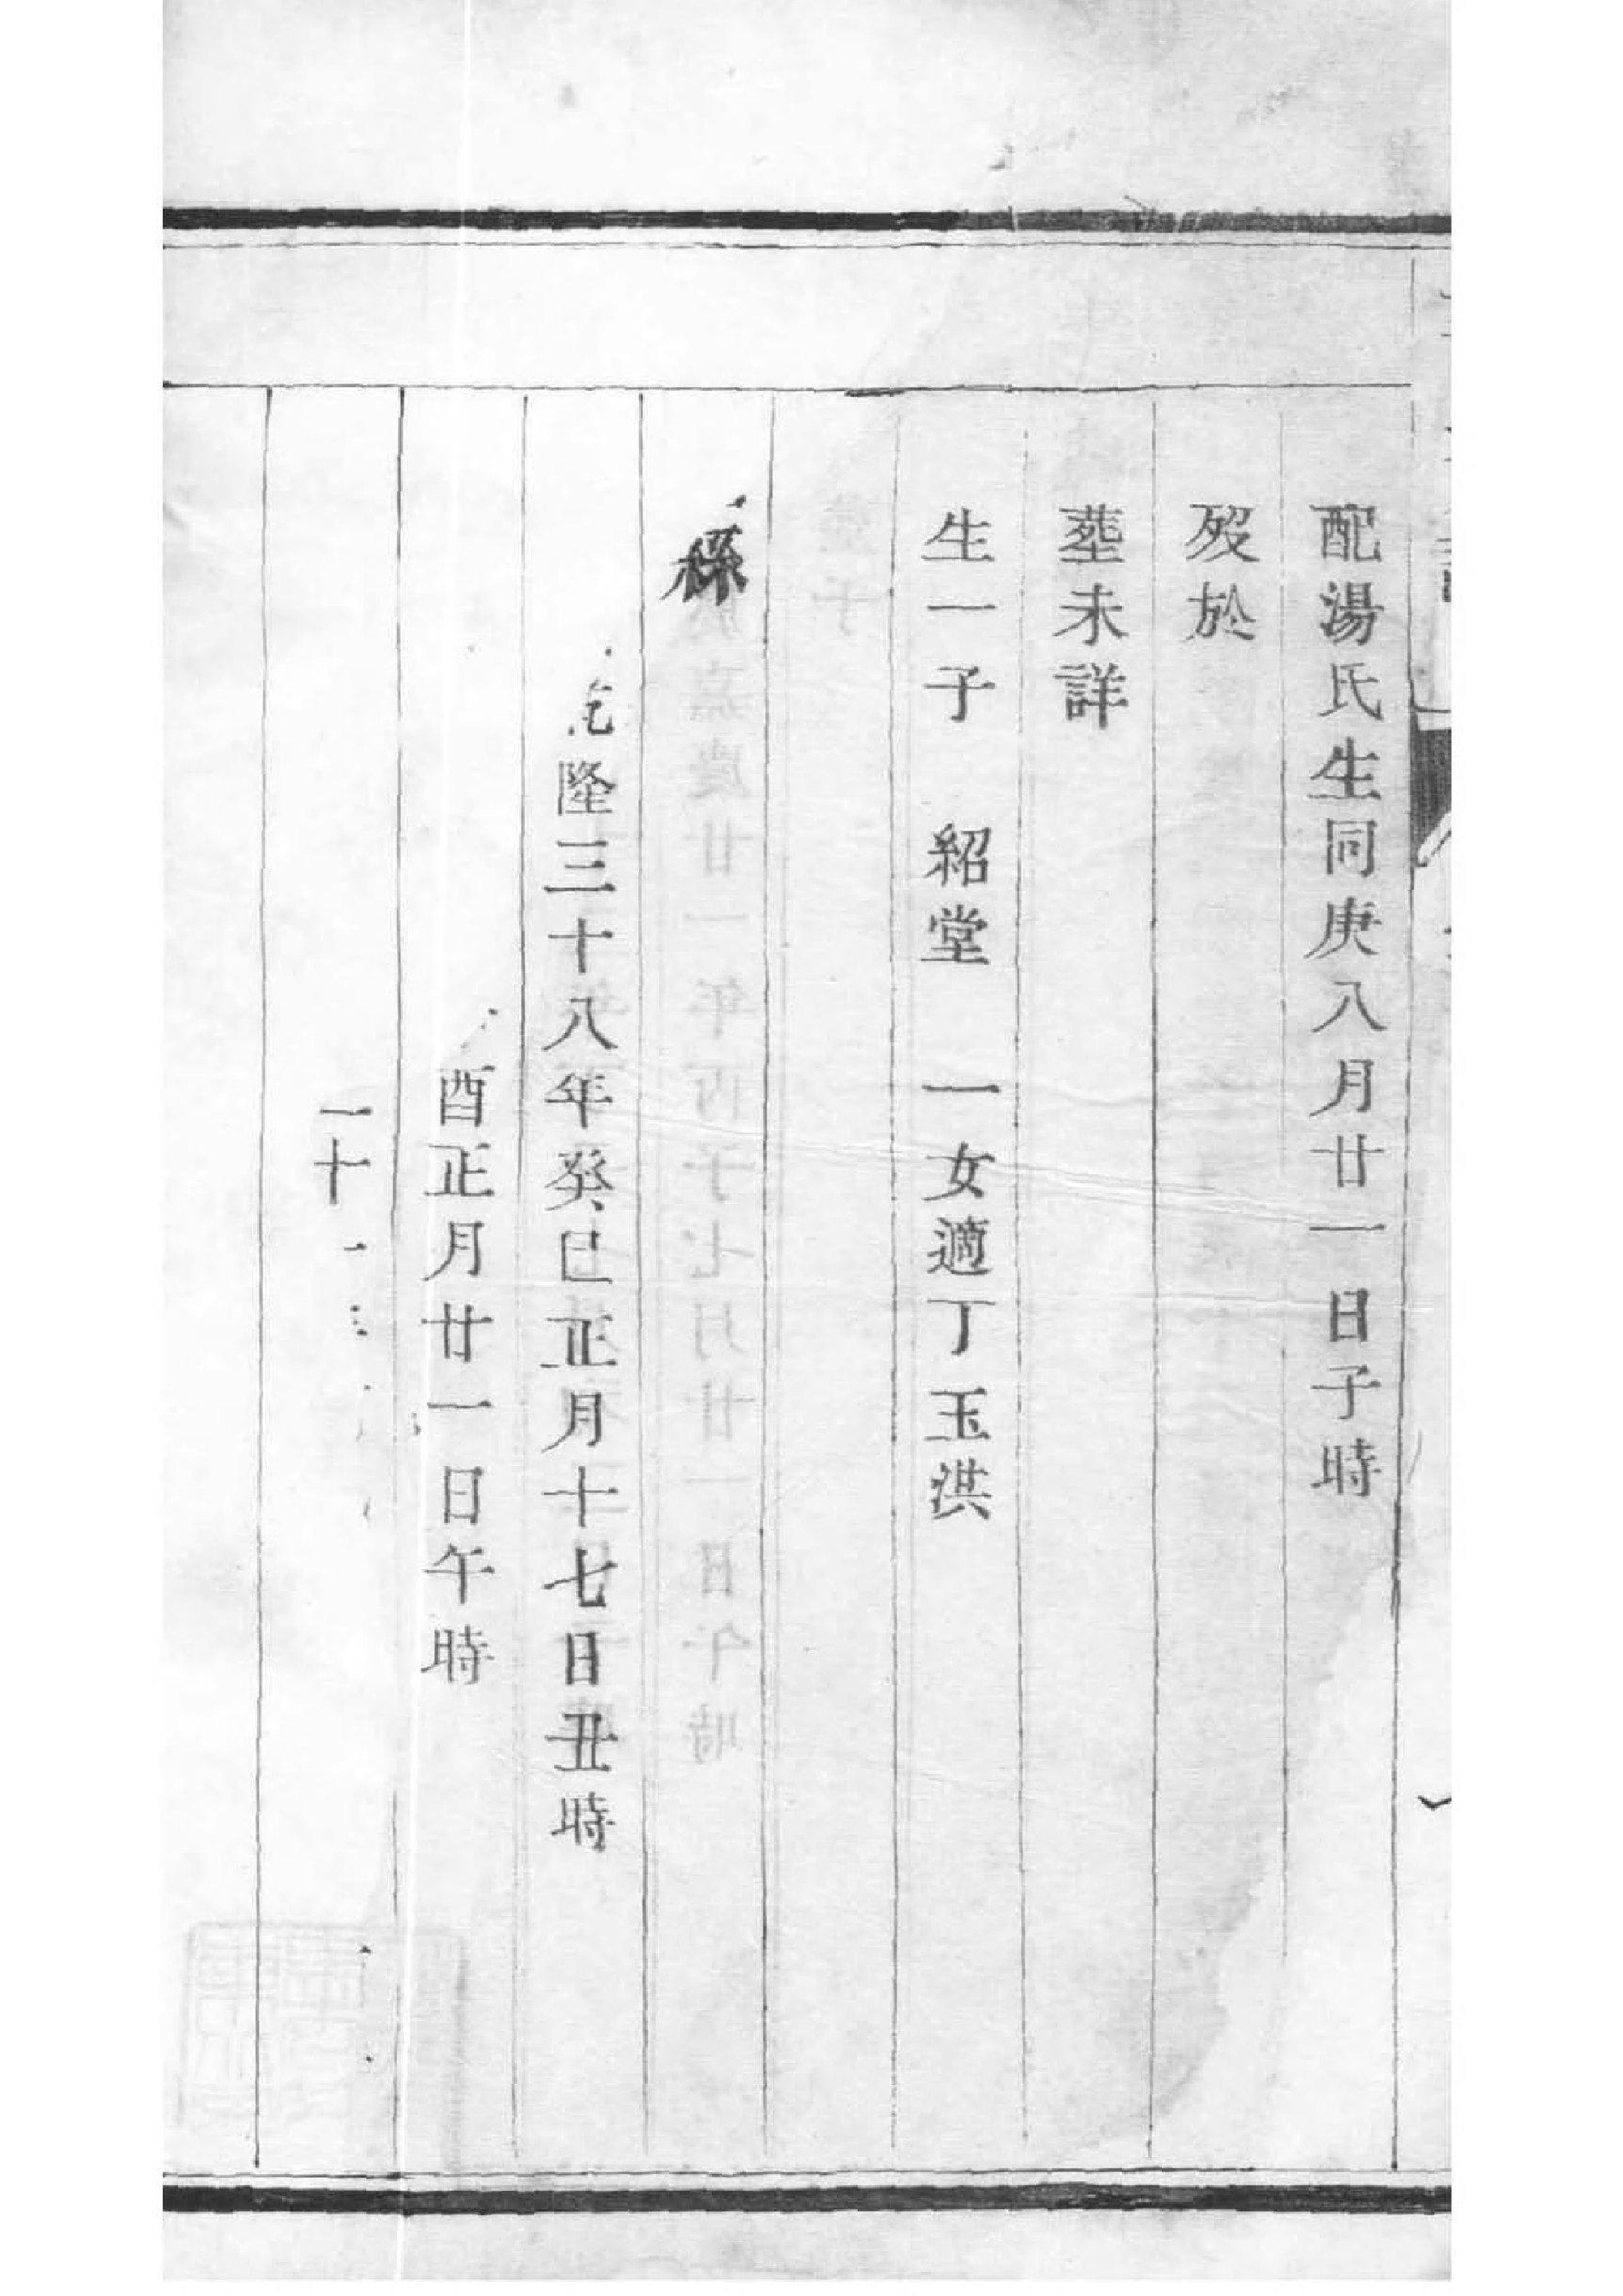 配湯氏生同庚八月廿一日子時
歿於
塟未詳
生一子　紹堂　一女適丁玉洪
隆三十八年癸巳正月十七日丑時
酉正月廿一日午時